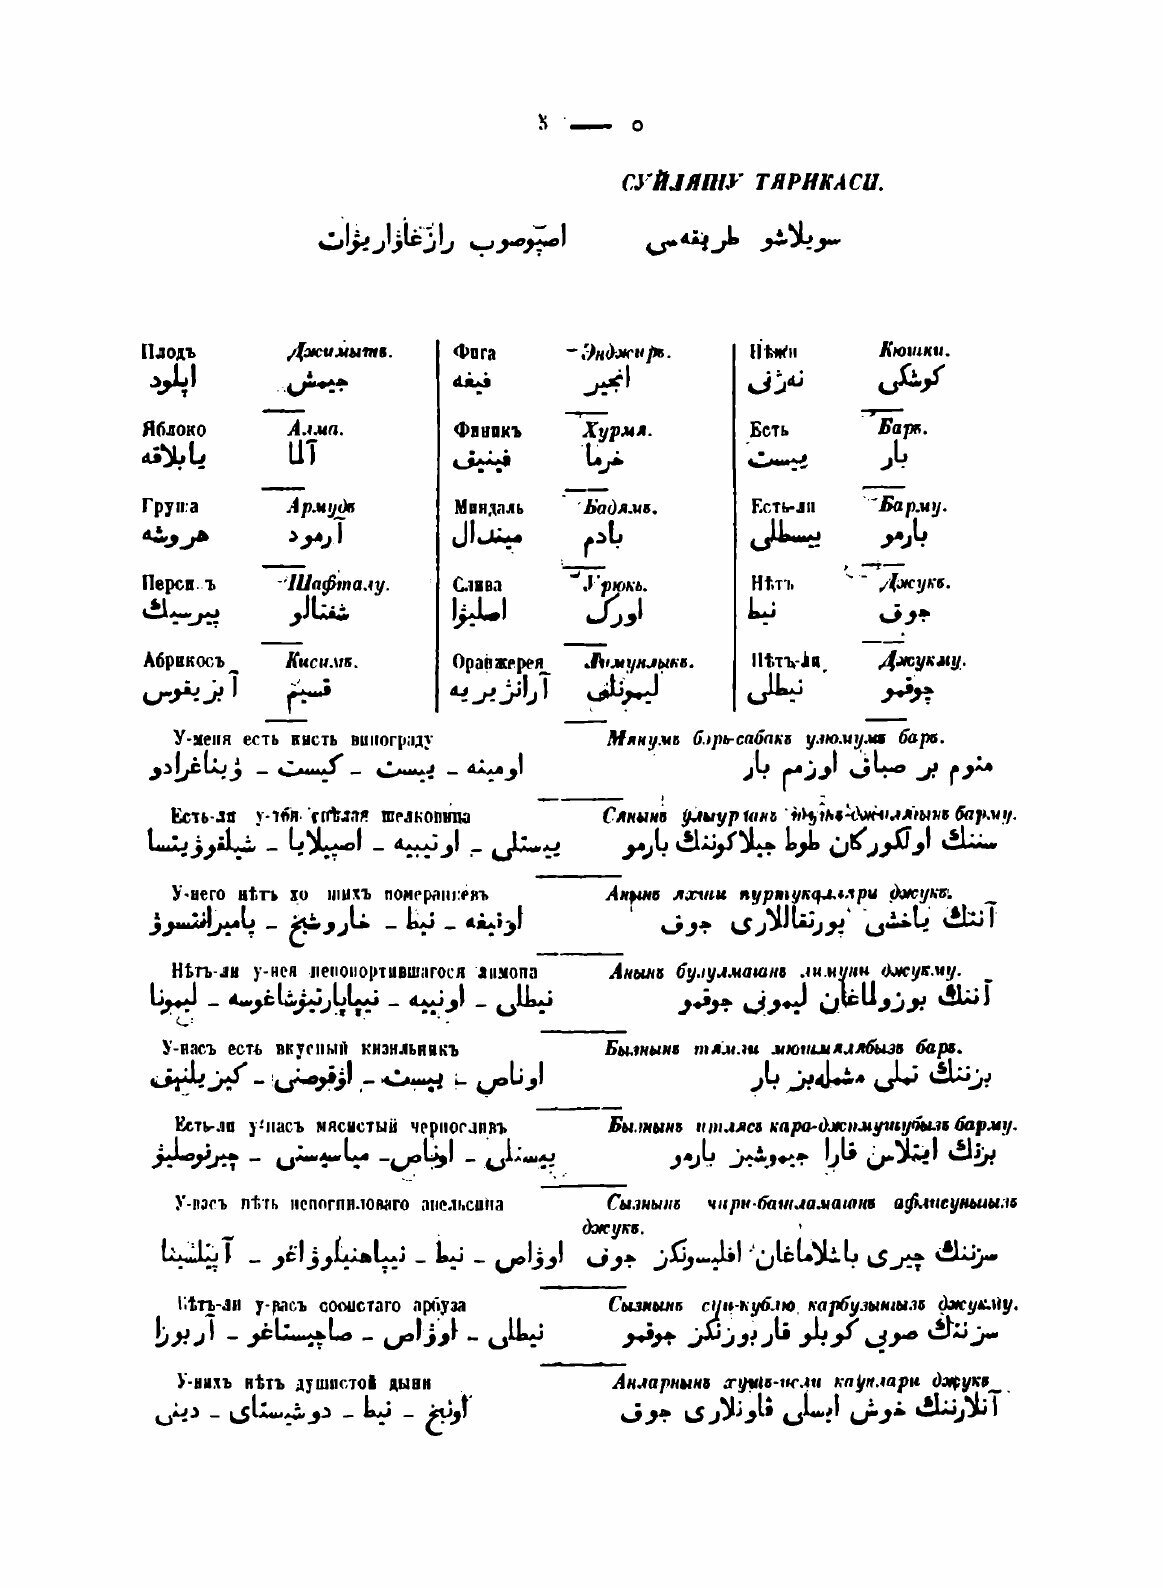 — ٥
СУЙЛЯШУ ТЯРИКАСИ.
سويلاشو طريقه‌سى
Плодъ Джимыть. Фига Энджирь. Нѣжи Кюшки.
اپلود جيمش فيغه انجير نەژنى كوشكى
Яблоко Алма. Финикъ Хурмя. Есть Барь.
يابلاقه آلما فينيق خرما ييست بار
Груша Армудъ Миндаль Бадямъ. Есть-ли Барму.
هروشه آرمود ميندال بادم ييسطلى بارمو
Шафталу. Слива Нѣтъ Джукъ.
پيرسيك شفتالو اصليوا اورك نيط جوق
Абрикосъ Кисимъ. Оранжерея Лимунлыкъ. Нѣтъ-ли Джукму.
آبريقوس قسيم آرانژيريه ليمونلى نيطلى جوقمو
У-меня есть кисть винограду Мянумъ бирь-сабакъ улюмумъ барь.
اومينه – ييست – كيست – ويناغرادو منوم بر صباق اوزمم بار
Есть-ли спѣлая шелковица барму.
ييستلى – اوتيبيه – اصپيلايا – شيلقوويتسا سننك اولكوركان طوط جيلاكوننك بارمو
У-него нѣтъ померанцевъ Анынъ яхши пуртукалляри джукъ.
اونيغه – نيط – خاروشيخ – پاميرانتسوو آننك ياخشى پورتقاللارى جوق
Нѣтъ-ли у-нея непопортившагося лимона Анынъ булулмаганъ лимуни джукму.
نيطلى – اونييه – نيپاپارتيوشاغوسه – ليمونا آننك بوزولماغان ليمونى جوقمو
У-насъ есть вкусный кизильникъ Былнынъ тямли мюшмялябызъ барь.
اوناص – ييست – اوقوصنى – كيزيلنيق بزننك تملى مشمله‌بز بار
Есть-ли у-насъ мясистый черносливъ Былнынъ итлясъ кара-джимушубызъ барму.
ييستلى – اوناص – مياسيستى – چيرنوصليو بزنك ايتلاس قارا جيموشبز بارمو
У-васъ нѣтъ непогниловаго апельсина Сызнынъ чири-башламаганъ афлисунынызъ
джукъ.
اوواص – نيط – نيپاهنيلوواغو – آپيلسينا سزننك چيرى باشلاماغان افليسونكز جوق
Нѣтъ-ли у-васъ сочистаго арбуза Сызнынъ суи-кублю карбузынызъ джукму.
نيطلى – اوواص – صاچيستاغو – آربوزا سزننك صويى كوبلو قاربوزنكز جوقمو
У-нихъ нѣтъ душистой дыни Анларнынъ хушъ-исли каунлари джукъ
اونيخ – نيط – دوشيستاى – دينى آنلارننك خوش ايسلى قاونلارى جوق